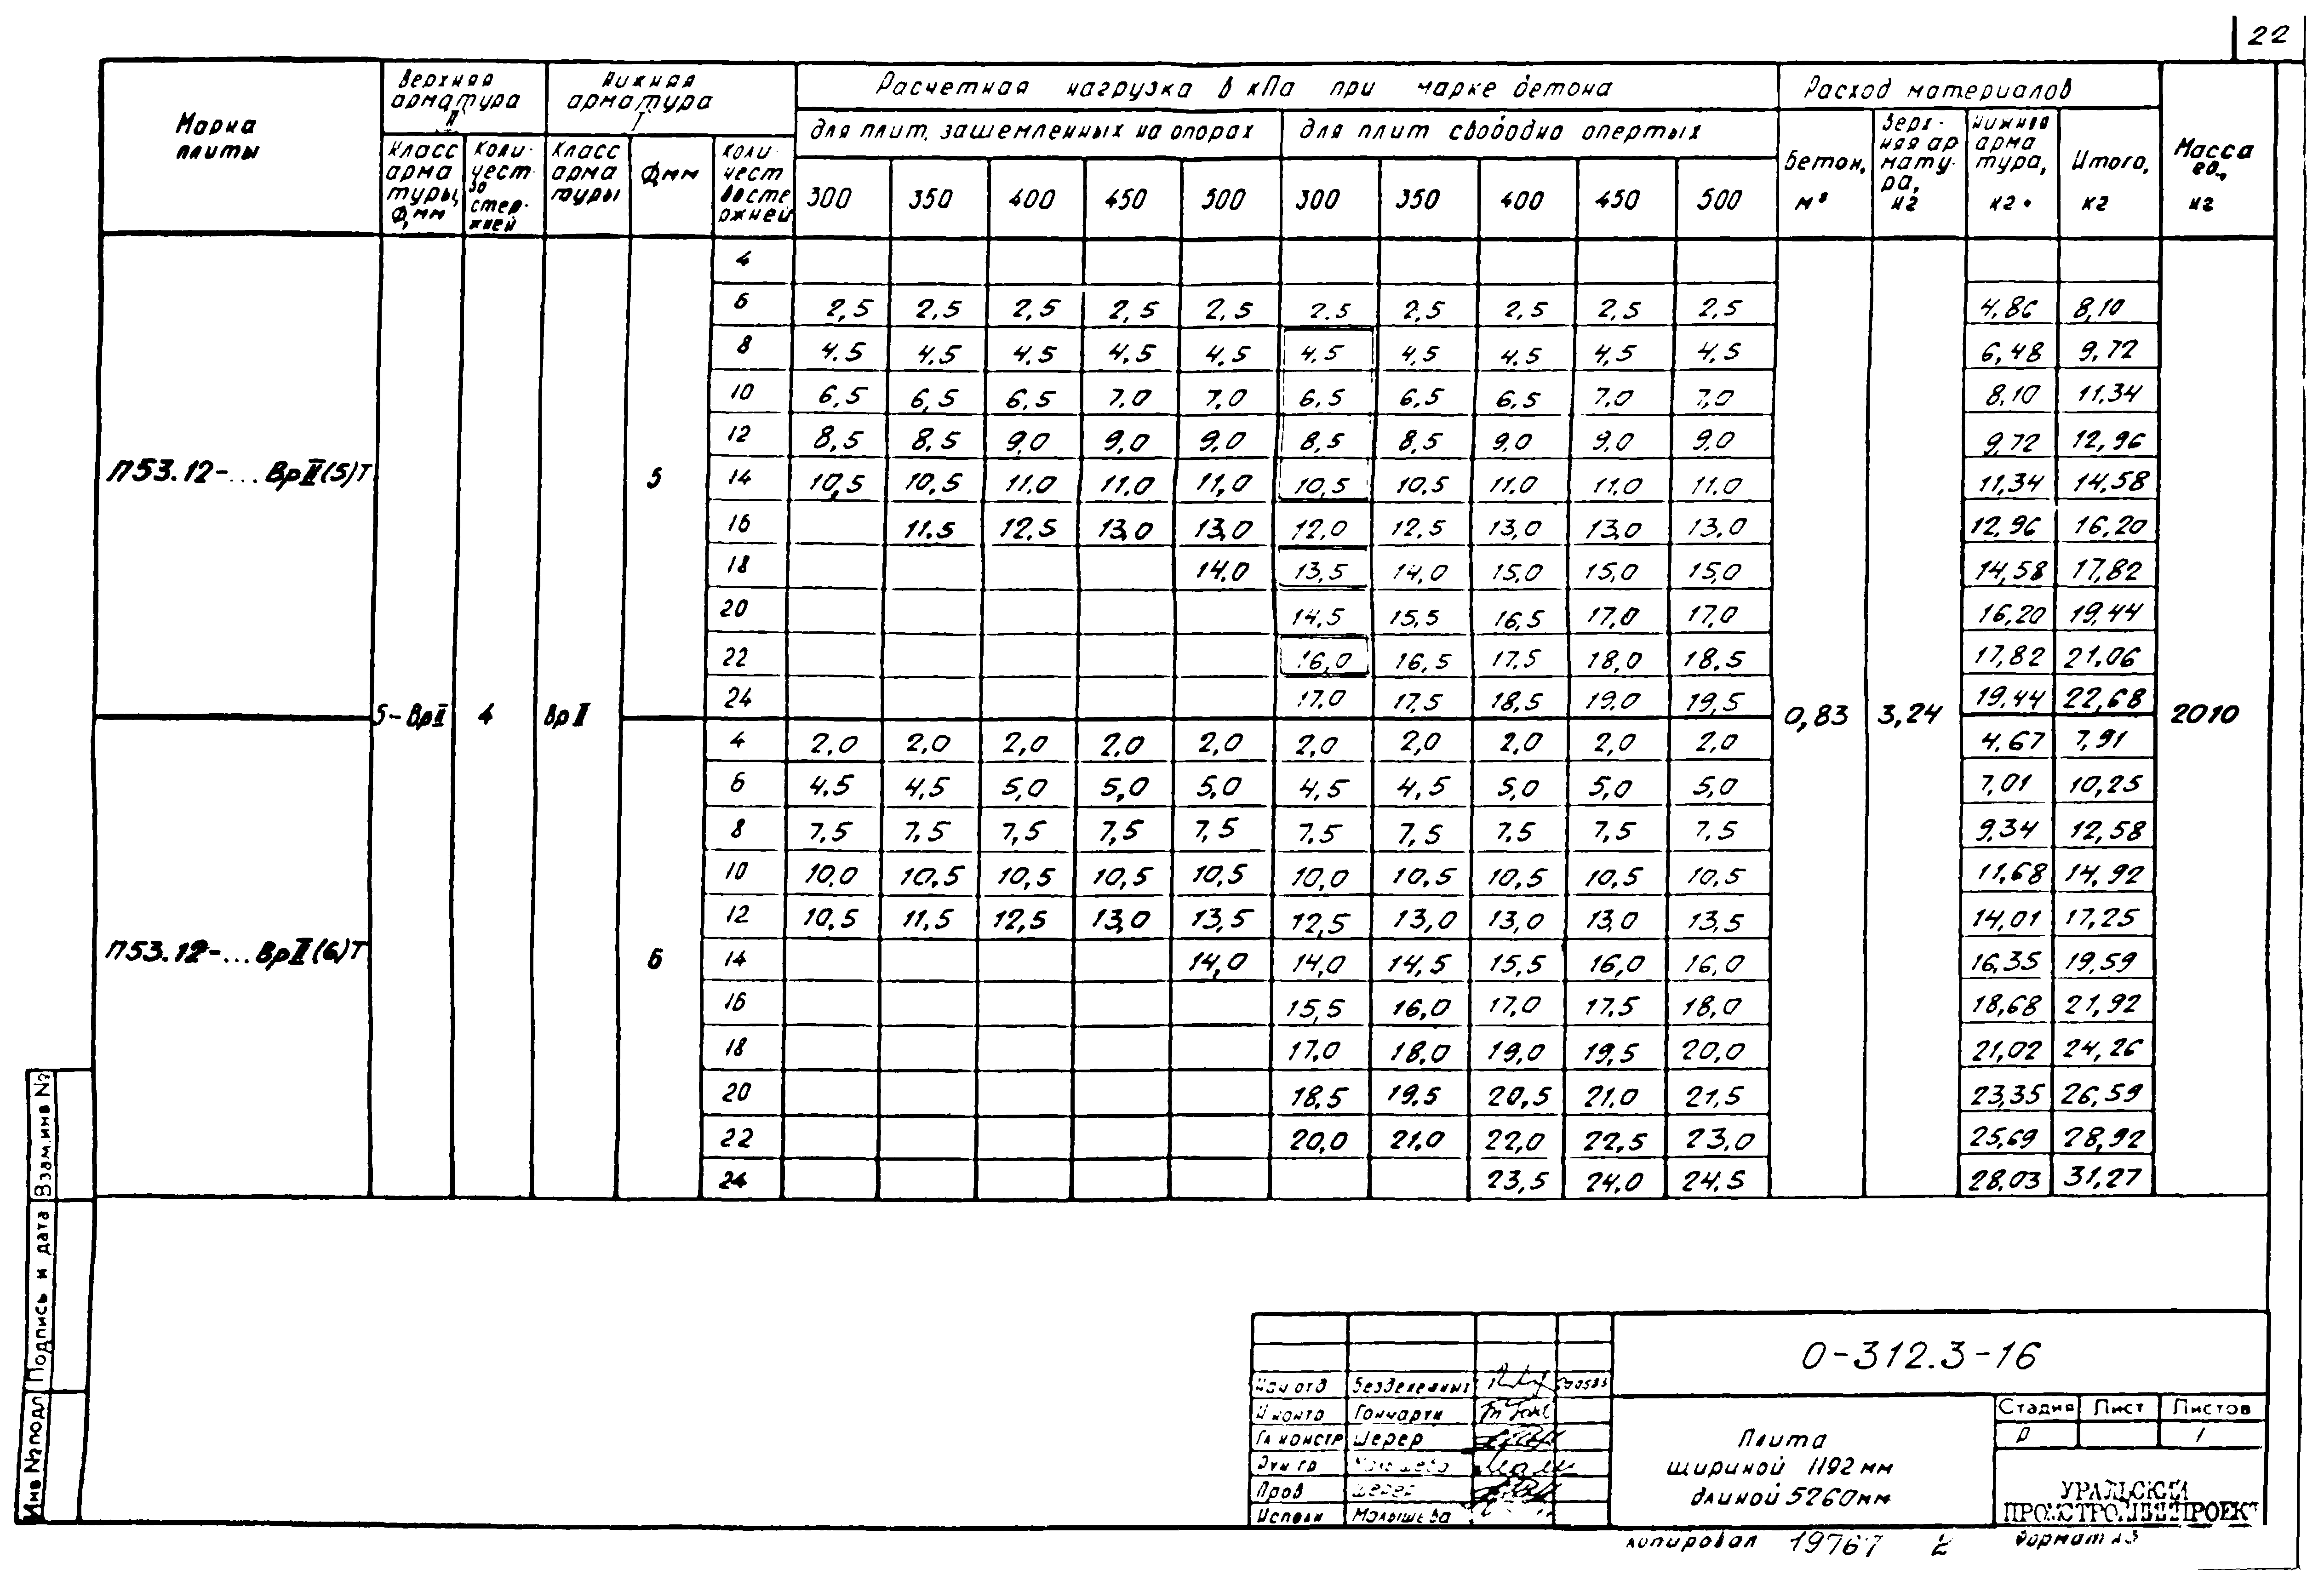 22
Марка плиты
Верхняя арматура II
Нижняя арматура I
Расчетная нагрузка в кПа при марке бетона
Расход материалов
Масса ед., кг
для плит, защемленных на опорах
для плит свободно опертых
Класс арматуры, Ф, мм
Количест-во стержней
Класс арматуры
Ф, мм
Количество стержней
300 350 400 450 500 300 350 400 450 500
Бетон, м³
Верхняя арматура, кг
Нижняя арматура, кг
Итого, кг
П53.12-... ВрII(5)Т
5-ВрII 4 ВрII 5
0,83 3,24 2010
4
6 2,5 2,5 2,5 2,5 2,5 2,5 2,5 2,5 2,5 2,5 4,86 8,10
8 4,5 4,5 4,5 4,5 4,5 4,5 4,5 4,5 4,5 4,5 6,48 9,72
10 6,5 6,5 6,5 7,0 7,0 6,5 6,5 6,5 7,0 7,0 8,10 11,34
12 8,5 8,5 9,0 9,0 9,0 8,5 8,5 9,0 9,0 9,0 9,72 12,96
14 10,5 10,5 11,0 11,0 11,0 10,5 10,5 11,0 11,0 11,0 11,34 14,58
16 11,5 12,5 13,0 13,0 12,0 12,5 13,0 13,0 13,0 12,96 16,20
18 14,0 13,5 14,0 15,0 15,0 15,0 14,58 17,82
20 14,5 15,5 16,5 17,0 17,0 16,20 19,44
22 16,0 16,5 17,5 18,0 18,5 17,82 21,06
24 17,0 17,5 18,5 19,0 19,5 19,44 22,68
П53.12-... ВрII(6)Т
6
4 2,0 2,0 2,0 2,0 2,0 2,0 2,0 2,0 2,0 2,0 4,67 7,91
6 4,5 4,5 5,0 5,0 5,0 4,5 4,5 5,0 5,0 5,0 7,01 10,25
8 7,5 7,5 7,5 7,5 7,5 7,5 7,5 7,5 7,5 7,5 9,34 12,58
10 10,0 10,5 10,5 10,5 10,5 10,0 10,5 10,5 10,5 10,5 11,68 14,92
12 10,5 11,5 12,5 13,0 13,5 12,5 13,0 13,0 13,0 13,5 14,01 17,25
14 14,0 14,0 14,5 15,5 16,0 16,0 16,35 19,59
16 15,5 16,0 17,0 17,5 18,0 18,68 21,92
18 17,0 18,0 19,0 19,5 20,0 21,02 24,26
20 18,5 19,5 20,5 21,0 21,5 23,35 26,59
22 20,0 21,0 22,0 22,5 23,0 25,69 28,92
24 23,5 24,0 24,5 28,03 31,27
Инв № подл Подпись и дата Взам.инв №
О-312.3-16
Нач отд
Н контр
Гл констр Шерер
Рук гр Малышева
Пров Шерер
Исполн Малышева
Плита
шириной 1192 мм
длиной 5260 мм
Стадия Лист Листов
Р 1
УРАЛЬСКИЙ
ПРОМСТРОЙНИИПРОЕКТ
копировал 19767 2 Формат А3